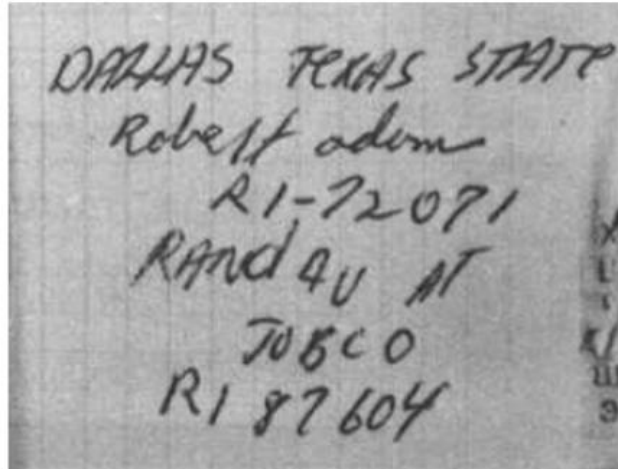 DALLAS TEXAS STATE
Robert adam
RI-72071
RAND 4U AT
JOBCO
RI 87604